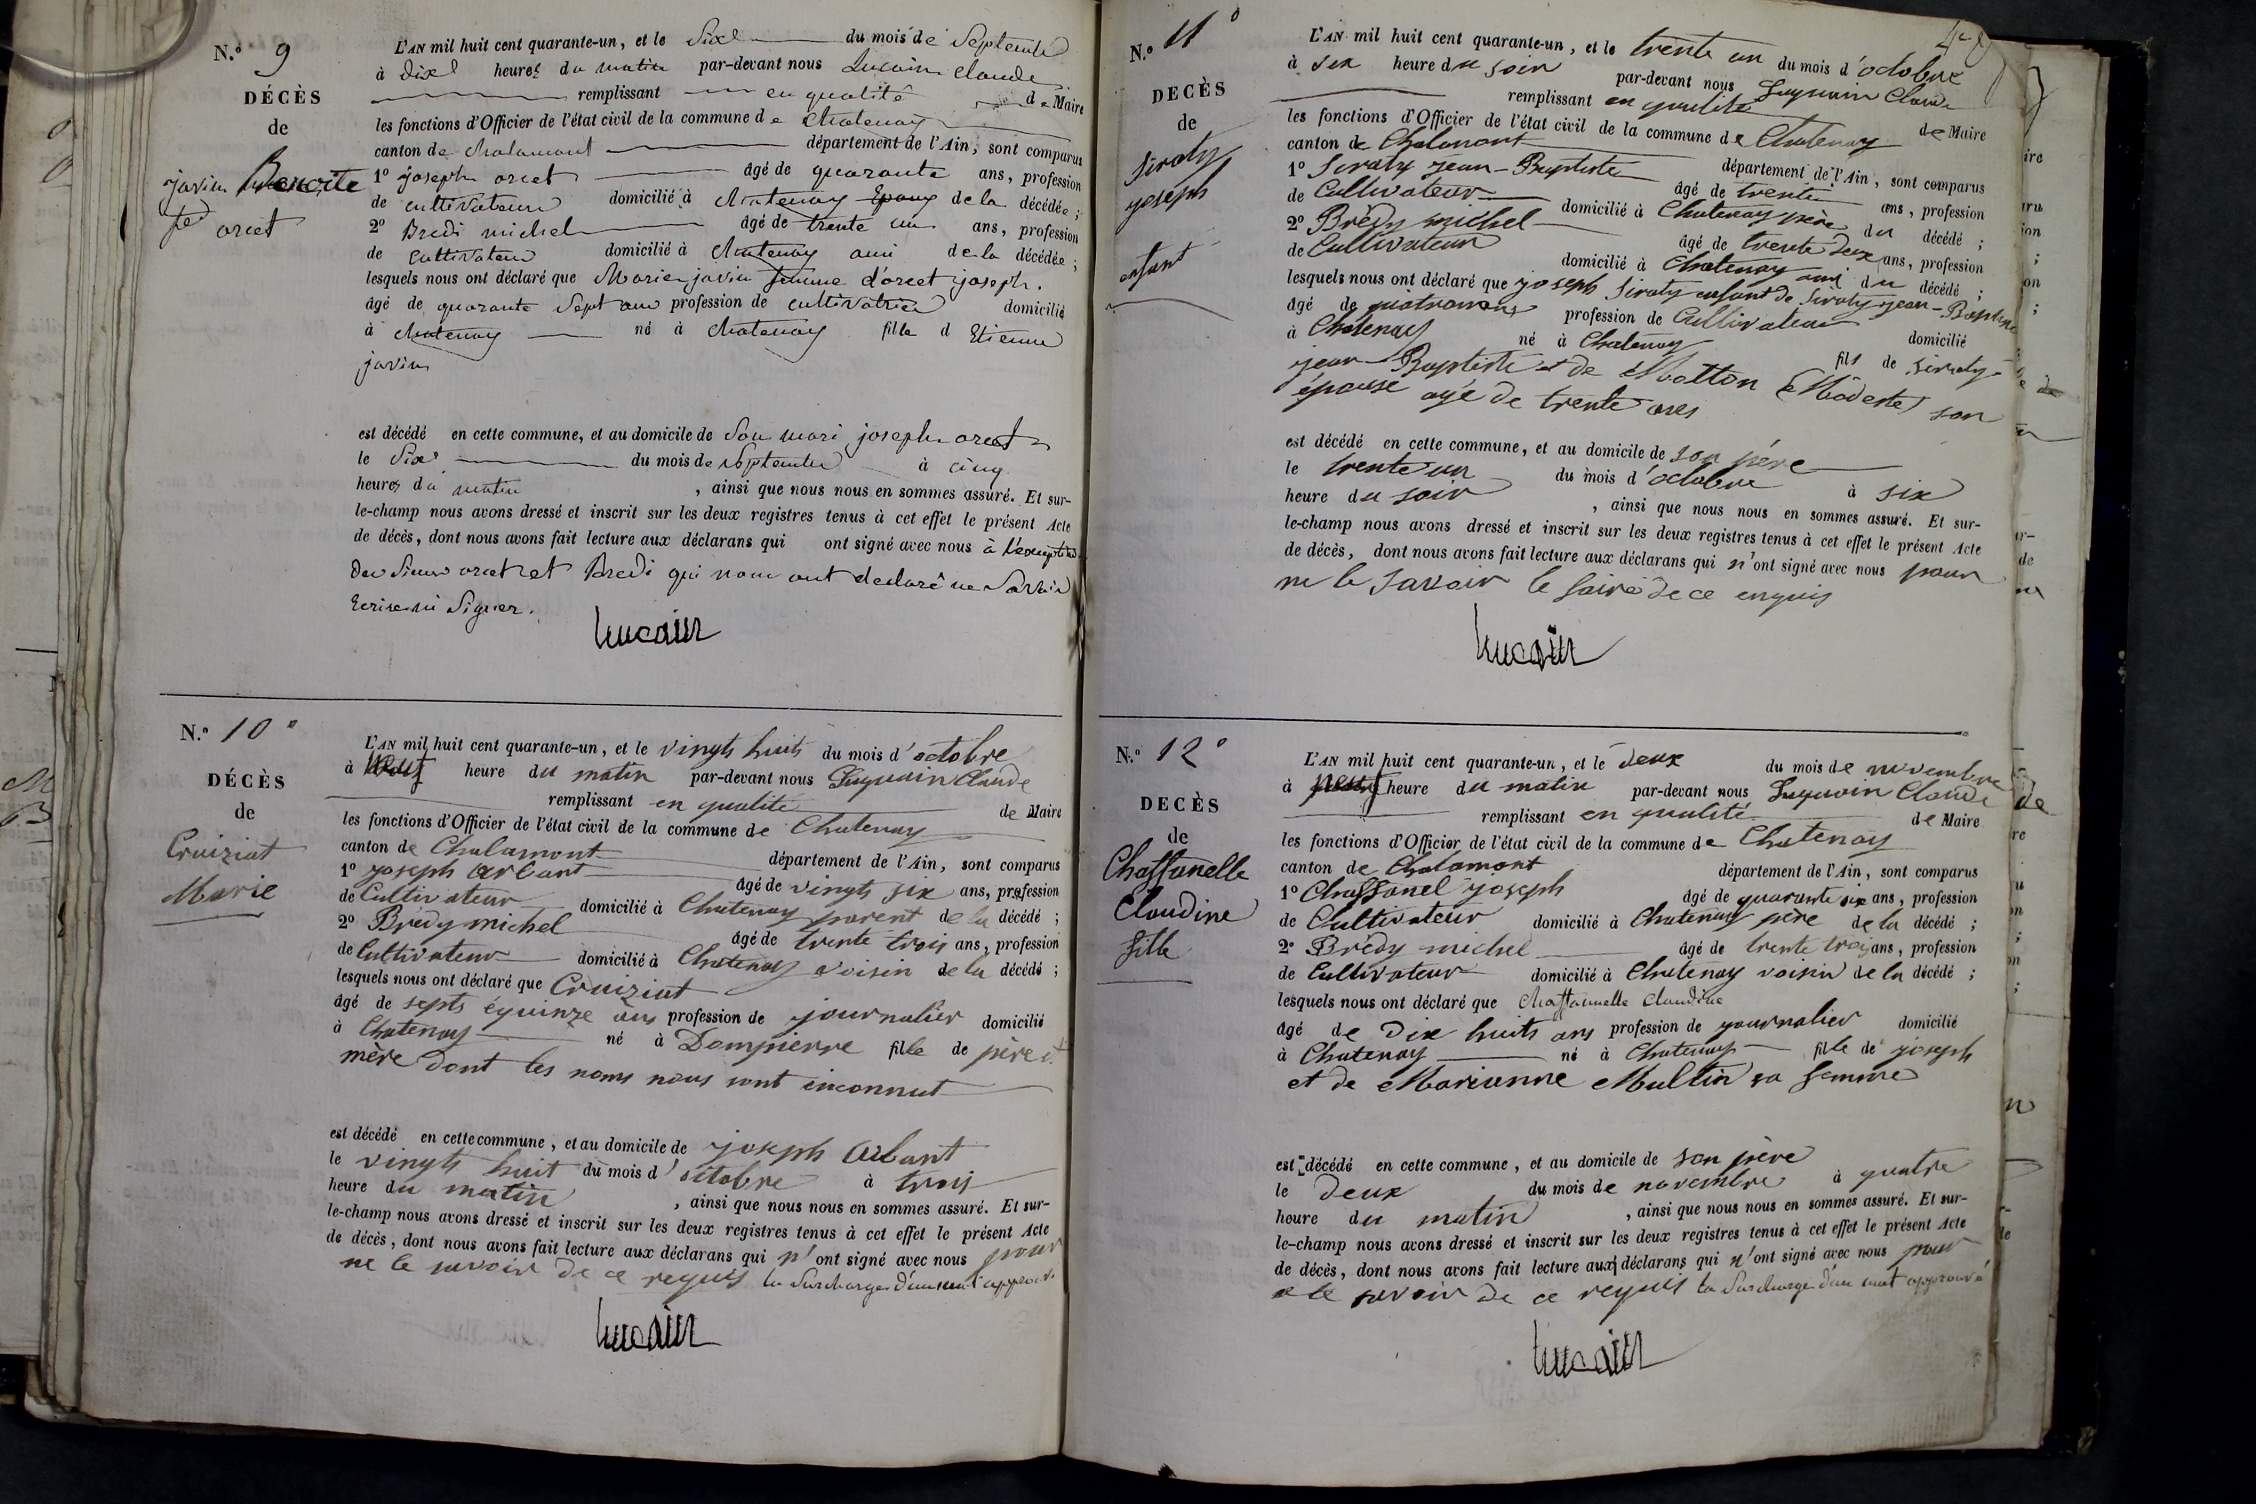 N.° 9
DÉCÈS
de
javin Benoite
fe orset
L'AN mil huit cent quarante-un, et le Six du mois de Septembre
à dix heures du matin par-devant nous Luquain Claude
remplissant en qualité de Maire
les fonctions d'Officier de l'état civil de la commune de Chatenay
canton de chalamont département de l'Ain, sont comparus
1° joseph orset âgé de quarante ans, profession
de cultivateur domicilié à Chatenay Epoux de la décédée ;
2° Bredi michel âgé de trente un ans, profession
de cultivateur domicilié à Chatenay ami de la décédée ;
lesquels nous ont déclaré que Marie javin femme d'orset joseph.
âgé de quarante Sept ans profession de cultivatrice domicilié
à chatenay né à chatenay fille d Etienne
javin
est décédé en cette commune, et au domicile de Son mari joseph orset
le Six du mois de Septembre à cinq
heures du matin , ainsi que nous nous en sommes assuré. Et sur-
le-champ nous avons dressé et inscrit sur les deux registres tenus à cet effet le présent Acte
de décès, dont nous avons fait lecture aux déclarans qui ont signé avec nous à l'exception
des Sieurs orset et Bredi qui nous ont declaré ne Savoir
Ecrire ni Signer.
N.° 10°
DÉCÈS
de
Cruiziat
Marie
L'AN mil huit cent quarante-un, et le vingts huits du mois d'octobre
à neuf heure du matin par-devant nous Luquain Claude
remplissant en qualité de Maire
les fonctions d'Officier de l'état civil de la commune de Chatenay
canton de Chalamont département de l'Ain, sont comparus
1° joseph Arbant âgé de vingts six ans, profession
de Cultivateur domicilié à Chatenay parent de la décédé ;
2° Brédy michel âgé de trente trois ans, profession
de Cultivateur domicilié à Chatenay voisin de la décédé ;
lesquels nous ont déclaré que Cruiziat
âgé de septs équinze ans profession de journalier domicilié
à Chatenay né à Dompierre fille de père et
mère dont les noms nous sont inconnut
est décédé en cette commune, et au domicile de joseph Arbant
le vingts huit du mois d'octobre à trois
heure du matin , ainsi que nous nous en sommes assuré. Et sur-
le-champ nous avons dressé et inscrit sur les deux registres tenus à cet effet le présent Acte
de décès, dont nous avons fait lecture aux déclarans qui n'ont signé avec nous pour
ne le savoir de ce requis la Surcharge d'un mot approuvé
N.° 11°
DECÈS
de
Siraty
yoseph
enfant
L'AN mil huit cent quarante-un, et le trente un du mois d'octobre
à six heure du soir par-devant nous Luquain Claude
remplissant en qualité de Maire
les fonctions d'Officier de l'état civil de la commune de Chatenay
canton de Chalamont département de l'Ain, sont comparus
1° Siraty jean-Baptiste âgé de trente ans, profession
de Cultivateur domicilié à Chatenay père du décédé ;
2° Brédy michel âgé de trente deux ans, profession
de Cultivateur domicilié à Chatenay ami du décédé ;
lesquels nous ont déclaré que yoseph Siraty enfant de Siraty jean-Baptiste
âgé de quatre mois profession de Cultivateur domicilié
à Chatenay né à Chatenay fils de Siraty
jean-Baptiste et de Motton (Modeste) son
épouse âgé de trente ans
est décédé en cette commune, et au domicile de son père
le trente un du mois d'octobre à six
heure du soir , ainsi que nous nous en sommes assuré. Et sur-
le-champ nous avons dressé et inscrit sur les deux registres tenus à cet effet le présent Acte
de décès, dont nous avons fait lecture aux déclarans qui n'ont signé avec nous pour
ne le savoir le faire de ce enquis
N.° 12°
DECÈS
de
Chaffanelle
Claudine
fille
L'AN mil huit cent quarante-un, et le deux du mois de novembre
à neuf heure du matin par-devant nous Luquain Claude
remplissant en qualité de Maire
les fonctions d'Officier de l'état civil de la commune de Chatenay
canton de Chalamont département de l'Ain, sont comparus
1° Chaffanel yoseph âgé de quarante six ans, profession
de Cultivateur domicilié à Chatenay père de la décédé ;
2° Brédy michel âgé de trente trois ans, profession
de Cultivateur domicilié à Chatenay voisin de la décédé ;
lesquels nous ont déclaré que Chaffannelle Claudine
âgé de Dix huits ans profession de journalier domicilié
à Chatenay né à Chatenay fille de joseph
et de Marianne Multin sa femme
est décédé en cette commune, et au domicile de son père
le deux du mois de novembre à quatre
heure du matin , ainsi que nous nous en sommes assuré. Et sur-
le-champ nous avons dressé et inscrit sur les deux registres tenus à cet effet le présent Acte
de décès, dont nous avons fait lecture aux déclarans qui n'ont signé avec nous pour
ne le savoir de ce requis la Surcharge d'un mot approuvé